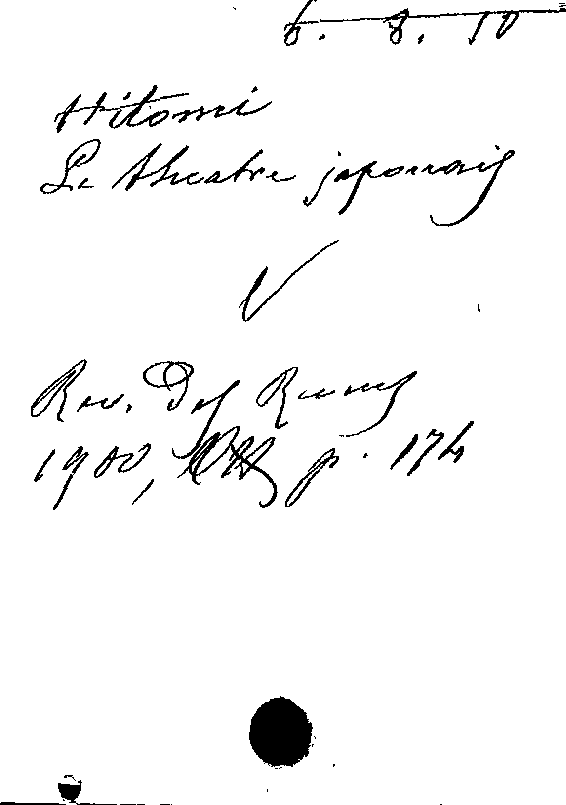 6. 8. 10
Hitomi
Le theatre japonais
Rev. Des Revues
1900, p. 174